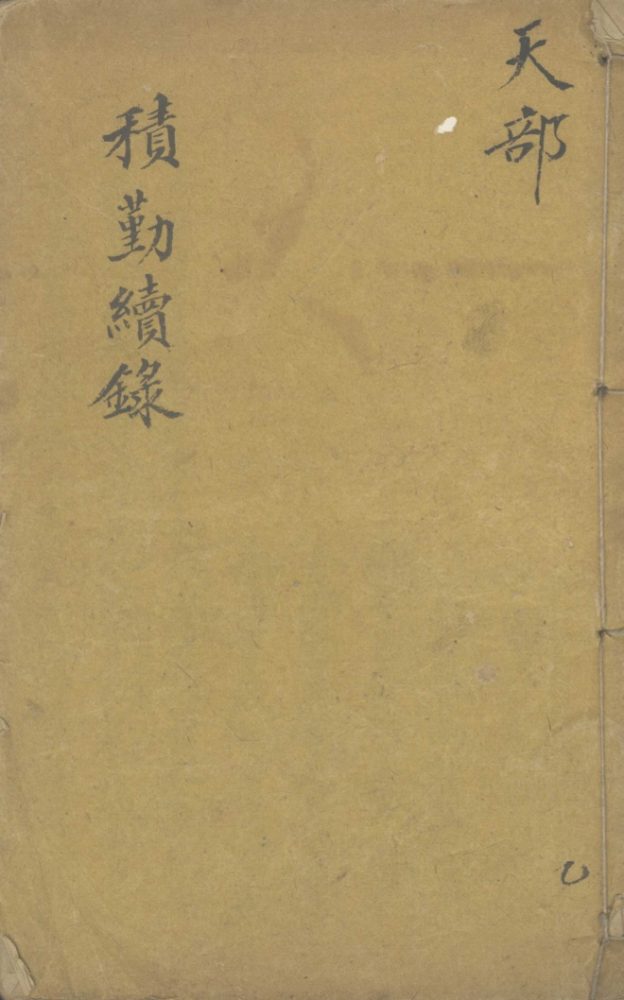 天部
積勤續錄
乙